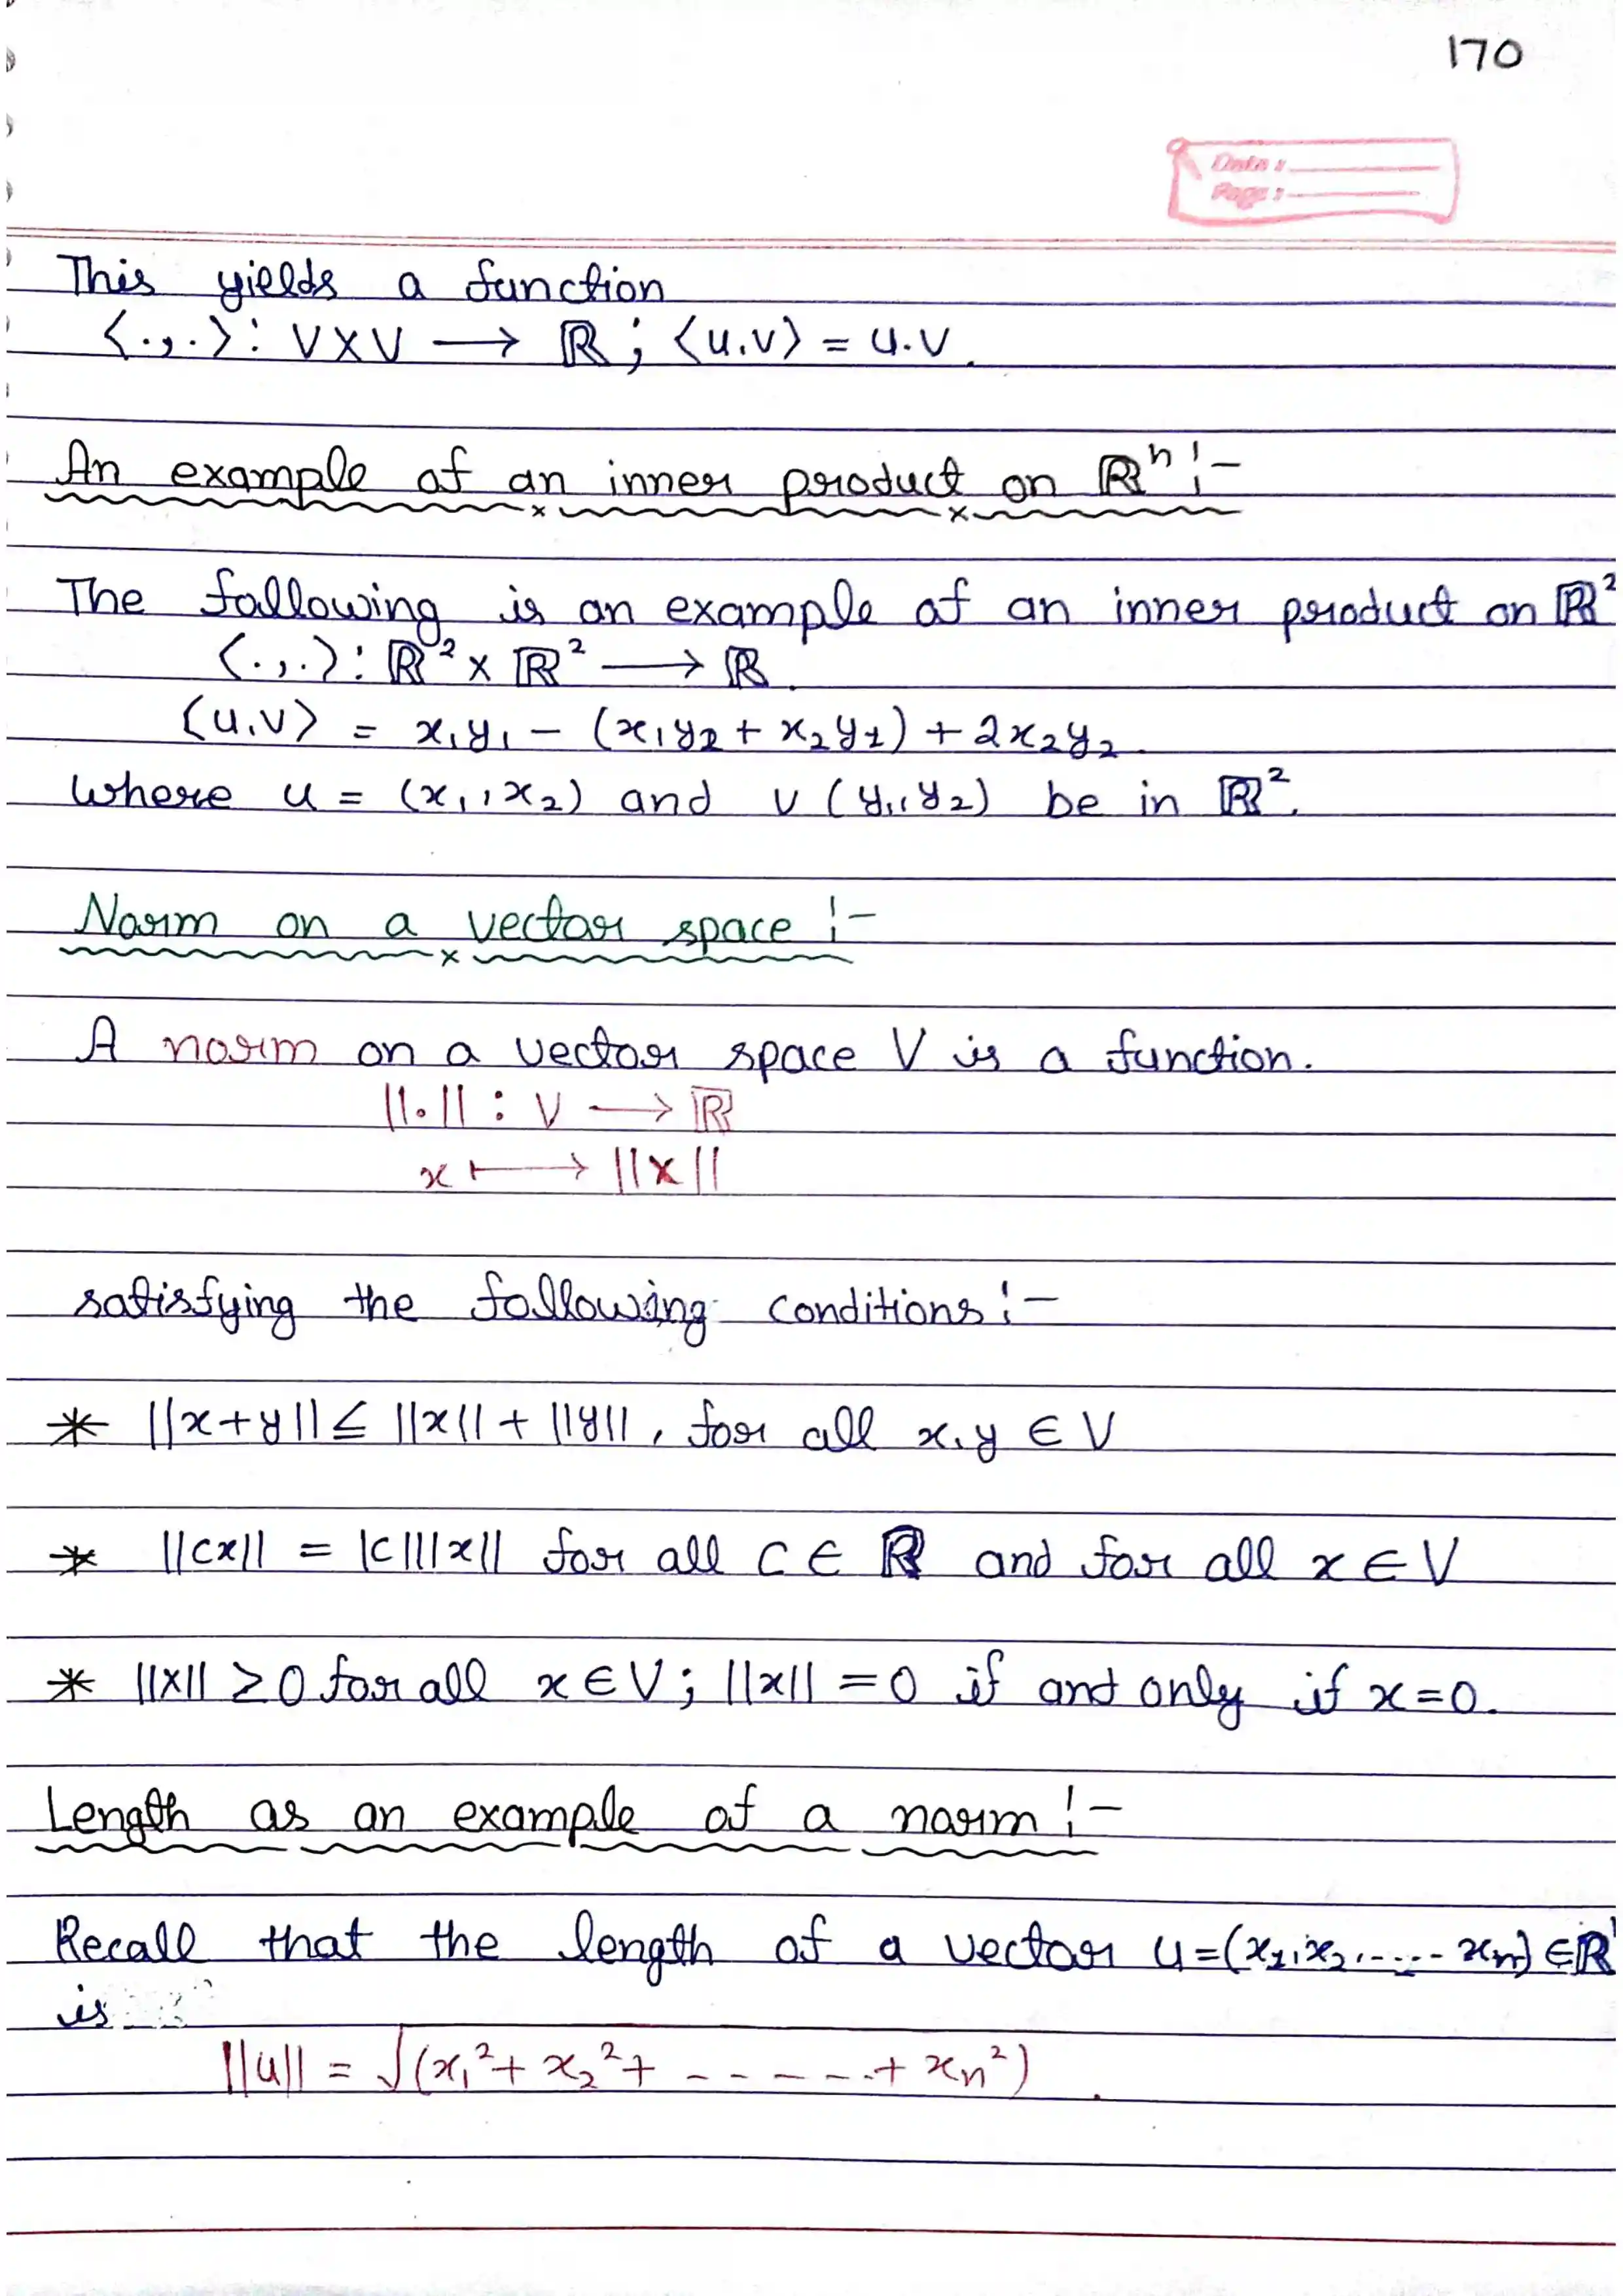 170
Date :
Page :
This yields a function
⟨.,.⟩ : V X V ⟶ ℝ ; ⟨u,v⟩ = u.v.
An example of an inner product on ℝⁿ :-
The following is an example of an inner product on ℝ²
⟨.,.⟩ : ℝ² × ℝ² ⟶ ℝ.
⟨u,v⟩ = x₁y₁ − (x₁y₂ + x₂y₁) + 2x₂y₂.
where u = (x₁,x₂) and v (y₁,y₂) be in ℝ².
Norm on a vector space :-
A norm on a vector space V is a function.
||.|| : V ⟶ ℝ
x ⟼ ||x||
satisfying the following conditions :-
* ||x+y|| ≤ ||x|| + ||y||, for all x,y ∈ V
* ||cx|| = |c|||x|| for all c ∈ ℝ and for all x ∈ V
* ||x|| ≥ 0 for all x ∈ V ; ||x|| = 0 if and only if x=0.
Length as an example of a norm :-
Recall that the length of a vector u=(x₁,x₂,..... xₙ) ∈ ℝ
is
||u|| = √(x₁² + x₂² + - - - - - - + xₙ²).